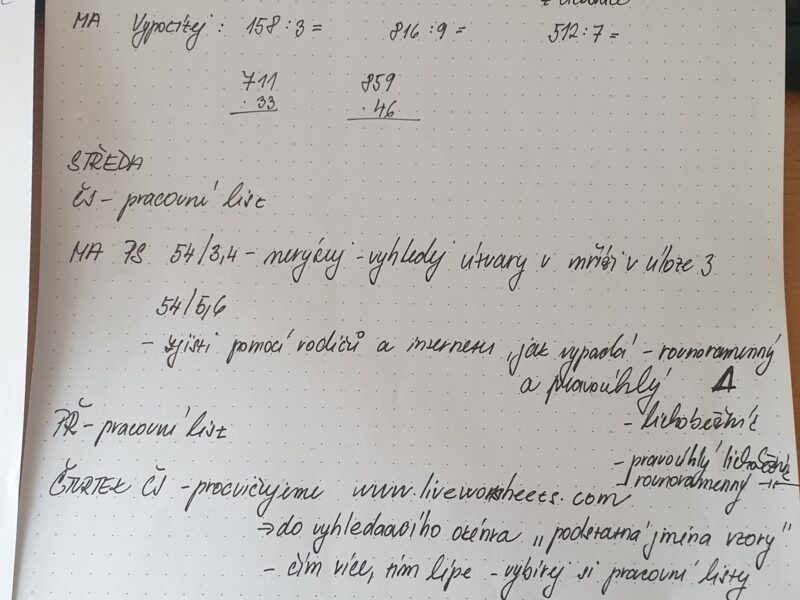 z učebnice
MA Vypočítej : 158 : 3 = 816 : 9 = 512 : 7 =
711 859
. 33 . 46
STŘEDA
ČS - pracovní list
MA PS 54/3,4 - nerýsuj - vyhledej útvary v mříži v úloze 3
54/5,6
- zjisti pomocí rodičů a internetu, jak vypadá - rovnoramenný
a pravoúhlý Δ
- lichoběžník
PŘ - pracovní list
- pravoúhlý lichoběžník
rovnoramenný -||-
ČTVRTEK ČS - procvičujeme www.liveworksheets.com
⇒ do vyhledávacího okénka „podstatná jména vzory"
- čím více, tím lépe - vybírej si pracovní listy